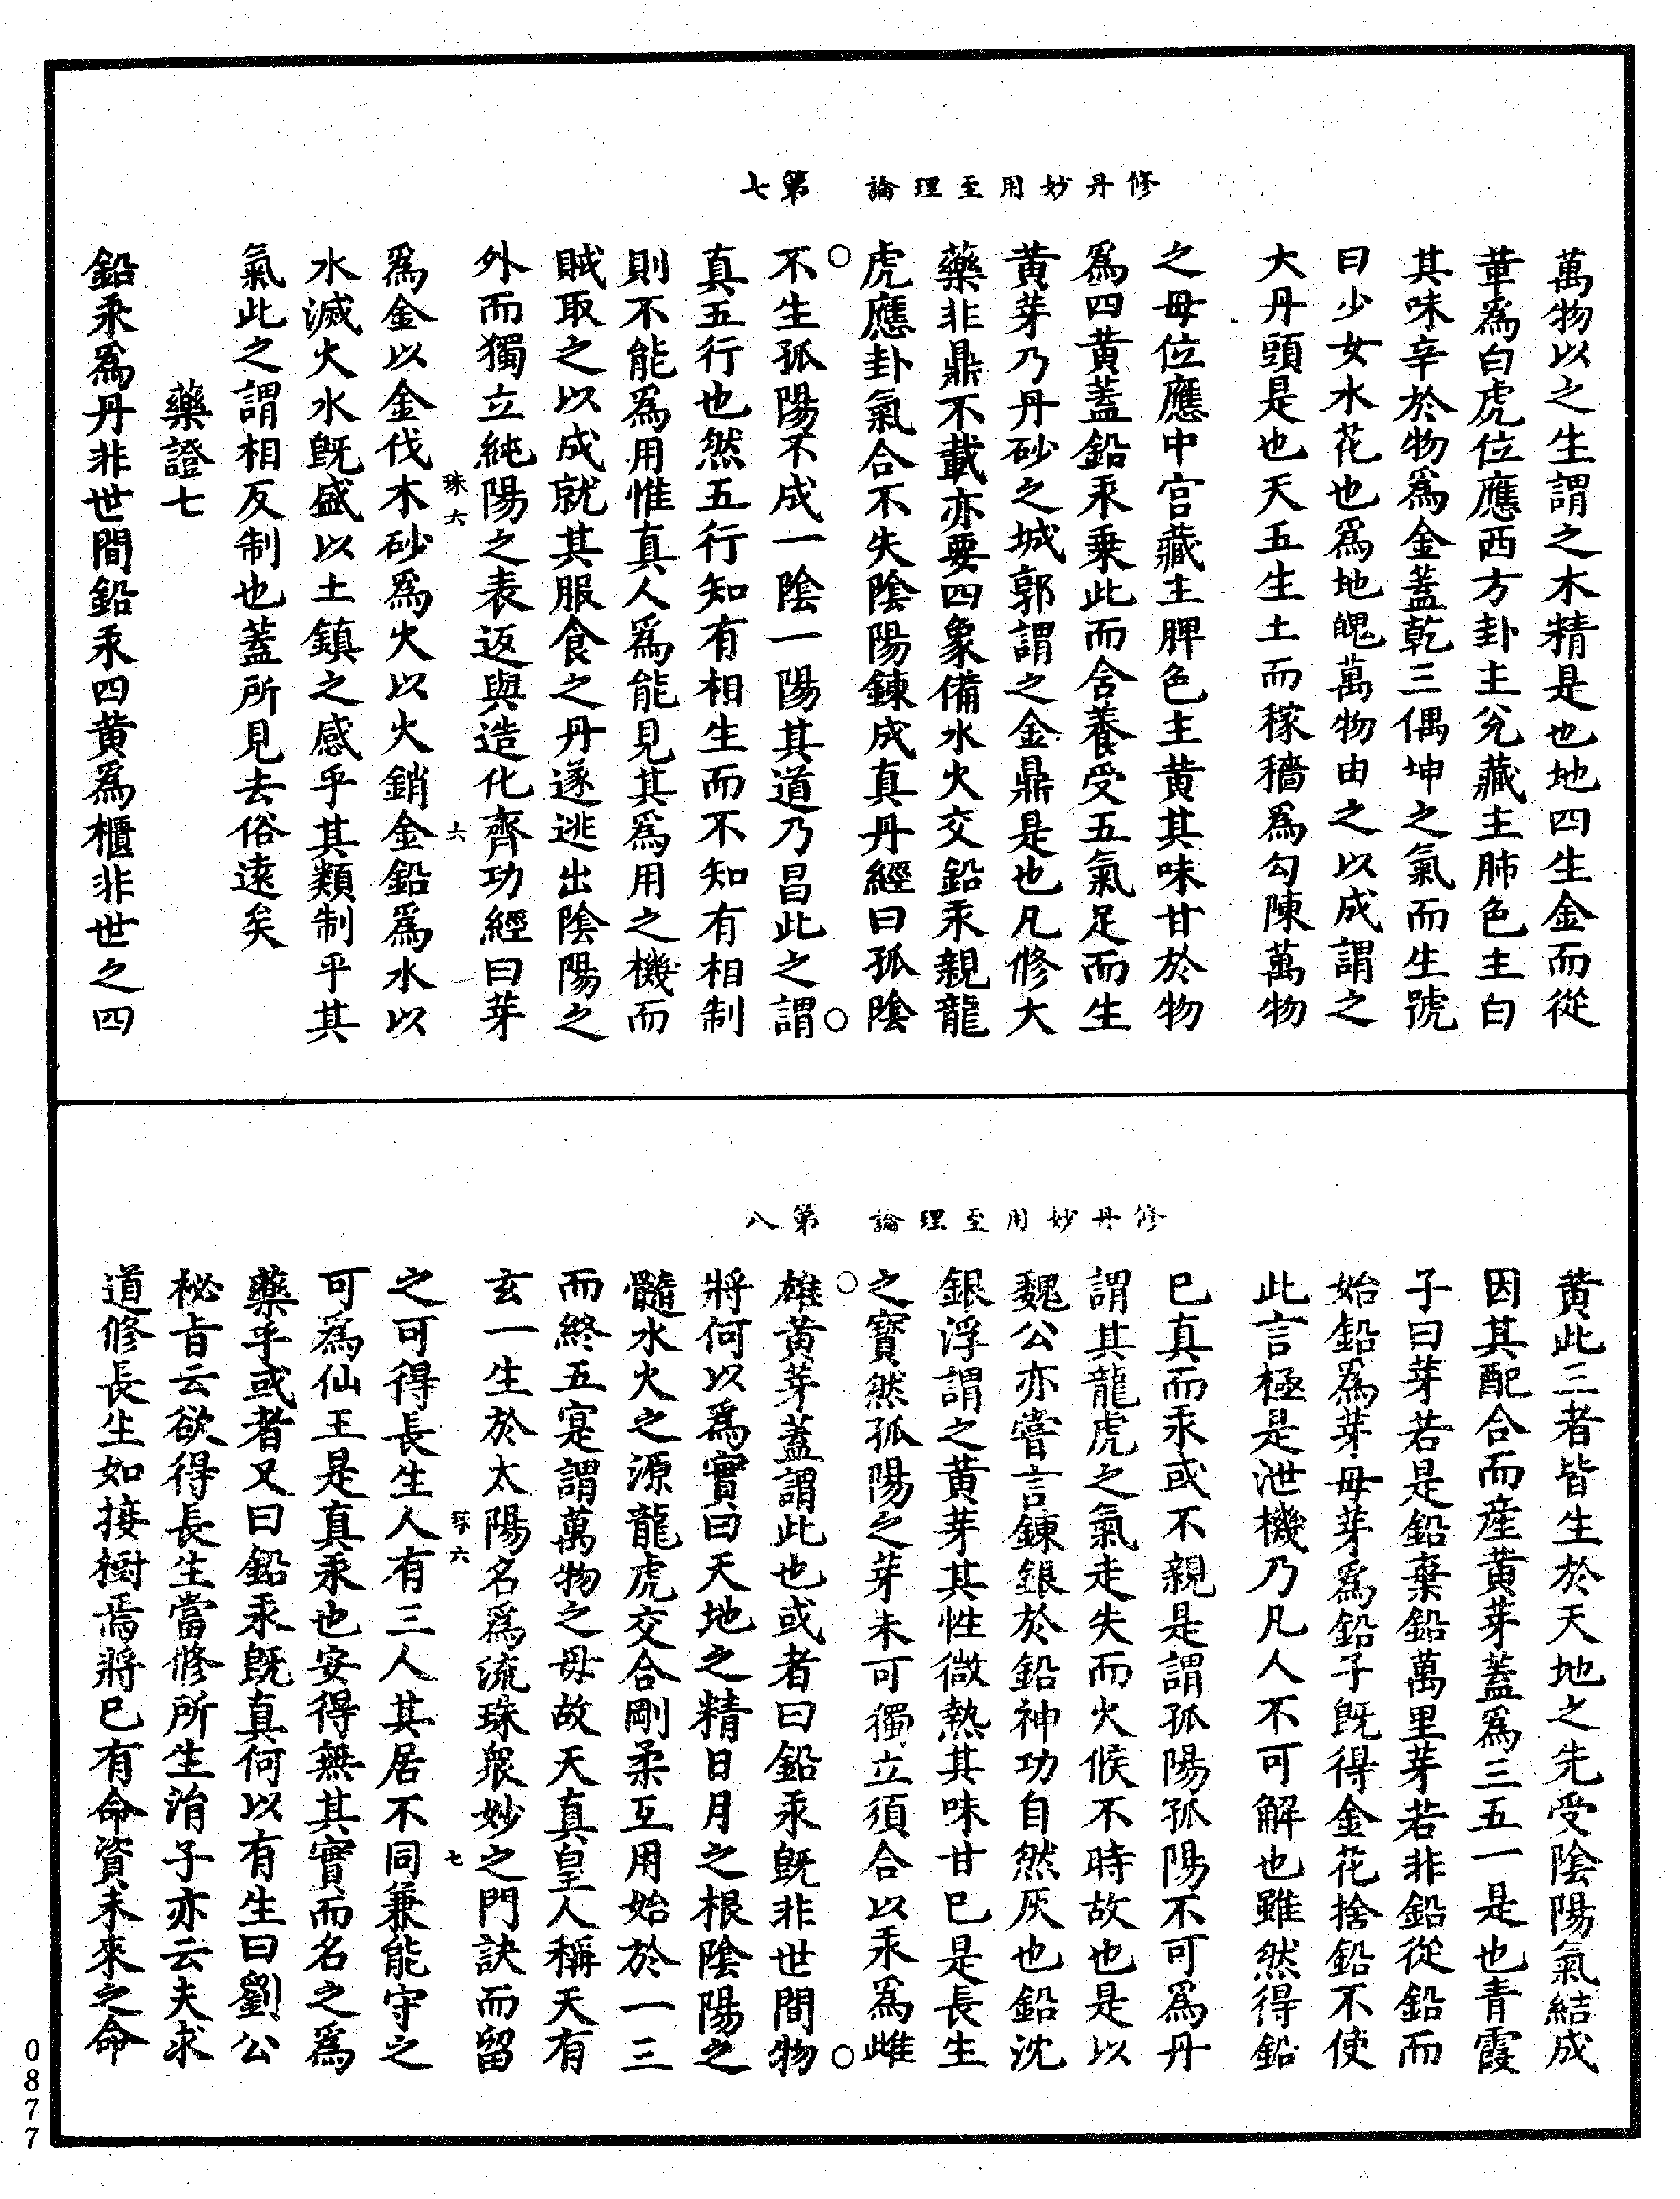 修丹妙用至理論　第七
萬物以之生謂之木精是也地四生金而從
革爲白虎位應西方卦主兊藏主肺色主白
其味辛於物爲金蓋乾三偶坤之氣而生號
曰少女水花也爲地魄萬物由之以成謂之
大丹頭是也天五生土而稼穡爲勾陳萬物
之母位應中宮藏主脾色主黃其味甘於物
爲四黃蓋鉛汞乗此而含養受五氣足而生
黃芽乃丹砂之城郭謂之金鼎是也凡修大
藥非鼎不載亦要四象備水火交鉛汞親龍
虎應卦氣合不失陰陽鍊成真丹經曰孤陰
不生孤陽不成一陰一陽其道乃昌此之謂
真五行也然五行知有相生而不知有相制
則不能爲用惟真人爲能見其爲用之機而
賊取之以成就其服食之丹遂逃出陰陽之
外而獨立純陽之表返與造化齊功經曰芽
珠六　六
爲金以金伐木砂爲火以火銷金鉛爲水以
水滅火水旣盛以土鎮之感乎其類制乎其
氣此之謂相反制也蓋所見去俗遠矣
藥證七
鉛汞爲丹非世間鉛汞四黃爲櫃非世之四
修丹妙用至理論　第八
黃此三者皆生於天地之先受陰陽氣結成
因其配合而産黃芽蓋爲三五一是也青霞
子曰芽若是鉛棄鉛萬里芽若非鉛從鉛而
始鉛爲芽母芽爲鉛子旣得金花捨鉛不使
此言極是泄機乃凡人不可解也雖然得鉛
已真而汞或不親是謂孤陽孤陽不可爲丹
謂其龍虎之氣走失而火候不時故也是以
魏公亦嘗言鍊銀於鉛神功自然灰也鉛沈
銀浮謂之黃芽其性微熱其味甘已是長生
之寶然孤陽之芽未可獨立須合以汞爲雌
雄黃芽蓋謂此也或者曰鉛汞旣非世間物
將何以爲實曰天地之精日月之根陰陽之
髓水火之源龍虎交合剛柔互用始於一三
而終五寔謂萬物之母故天真皇人稱天有
玄一生於太陽名爲流珠衆妙之門訣而留
珠六　七
之可得長生人有三人其居不同兼能守之
可爲仙王是真汞也安得無其實而名之爲
藥乎或者又曰鉛汞旣真何以有生曰劉公
秘旨云欲得長生當修所生涓子亦云夫求
道修長生如接樹焉將已有命資未來之命
0877